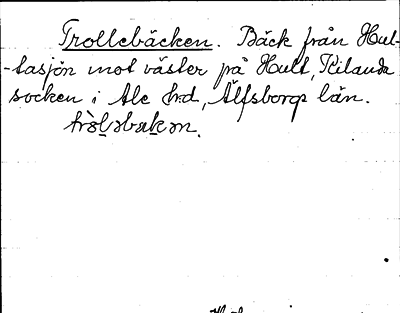 Trollebäcken. Bäck från Hul-
-tasjön mot väster på Hult, Kilanda
socken i Ale h:d, Älfsborgs län.